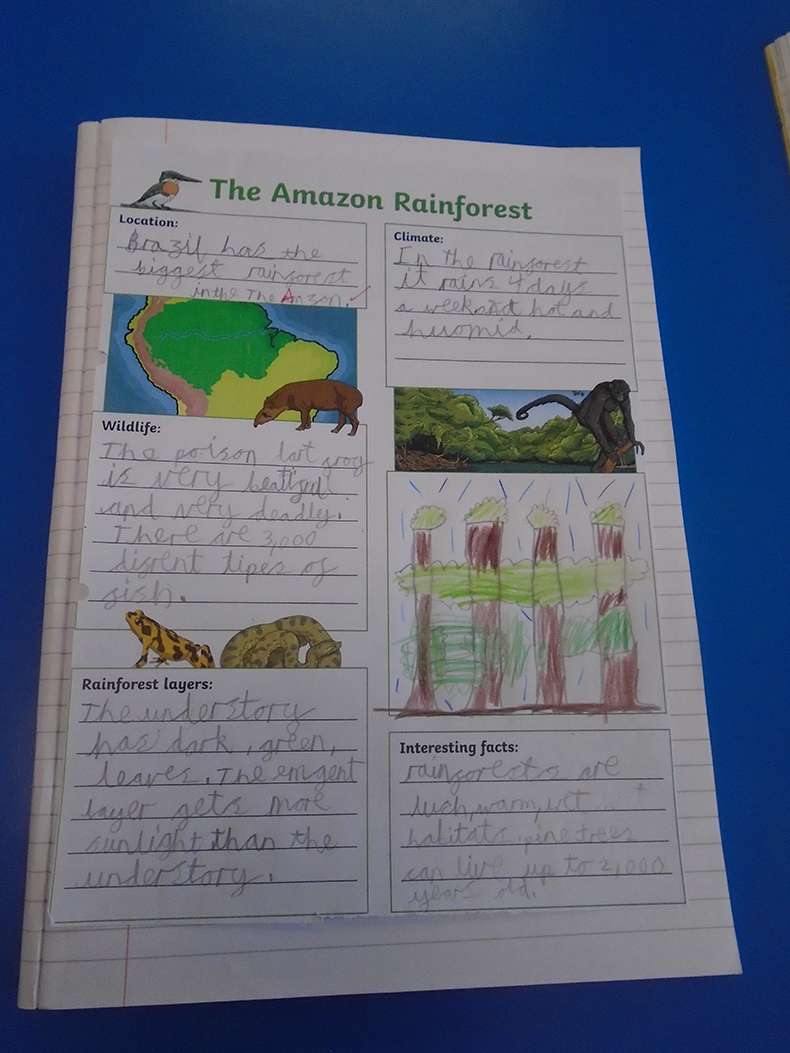 The Amazon Rainforest
Location:
Brazil has the
biggest rainforest
in the The Amzon.
Climate:
In the rainforest
it rains 4 days
a week and hot and
huomid.
Wildlife:
The poison dart frog
is very beatiful
and very deadly.
There are 3,000
disrent tipes of
fish.
Rainforest layers:
The understory
has dark, green,
leaves. The emgent
layer gets more
sunlight than the
understory.
Interesting facts:
rainforests are
lush, warm, wet
habitats. pine trees
can live up to 2,000
years old.